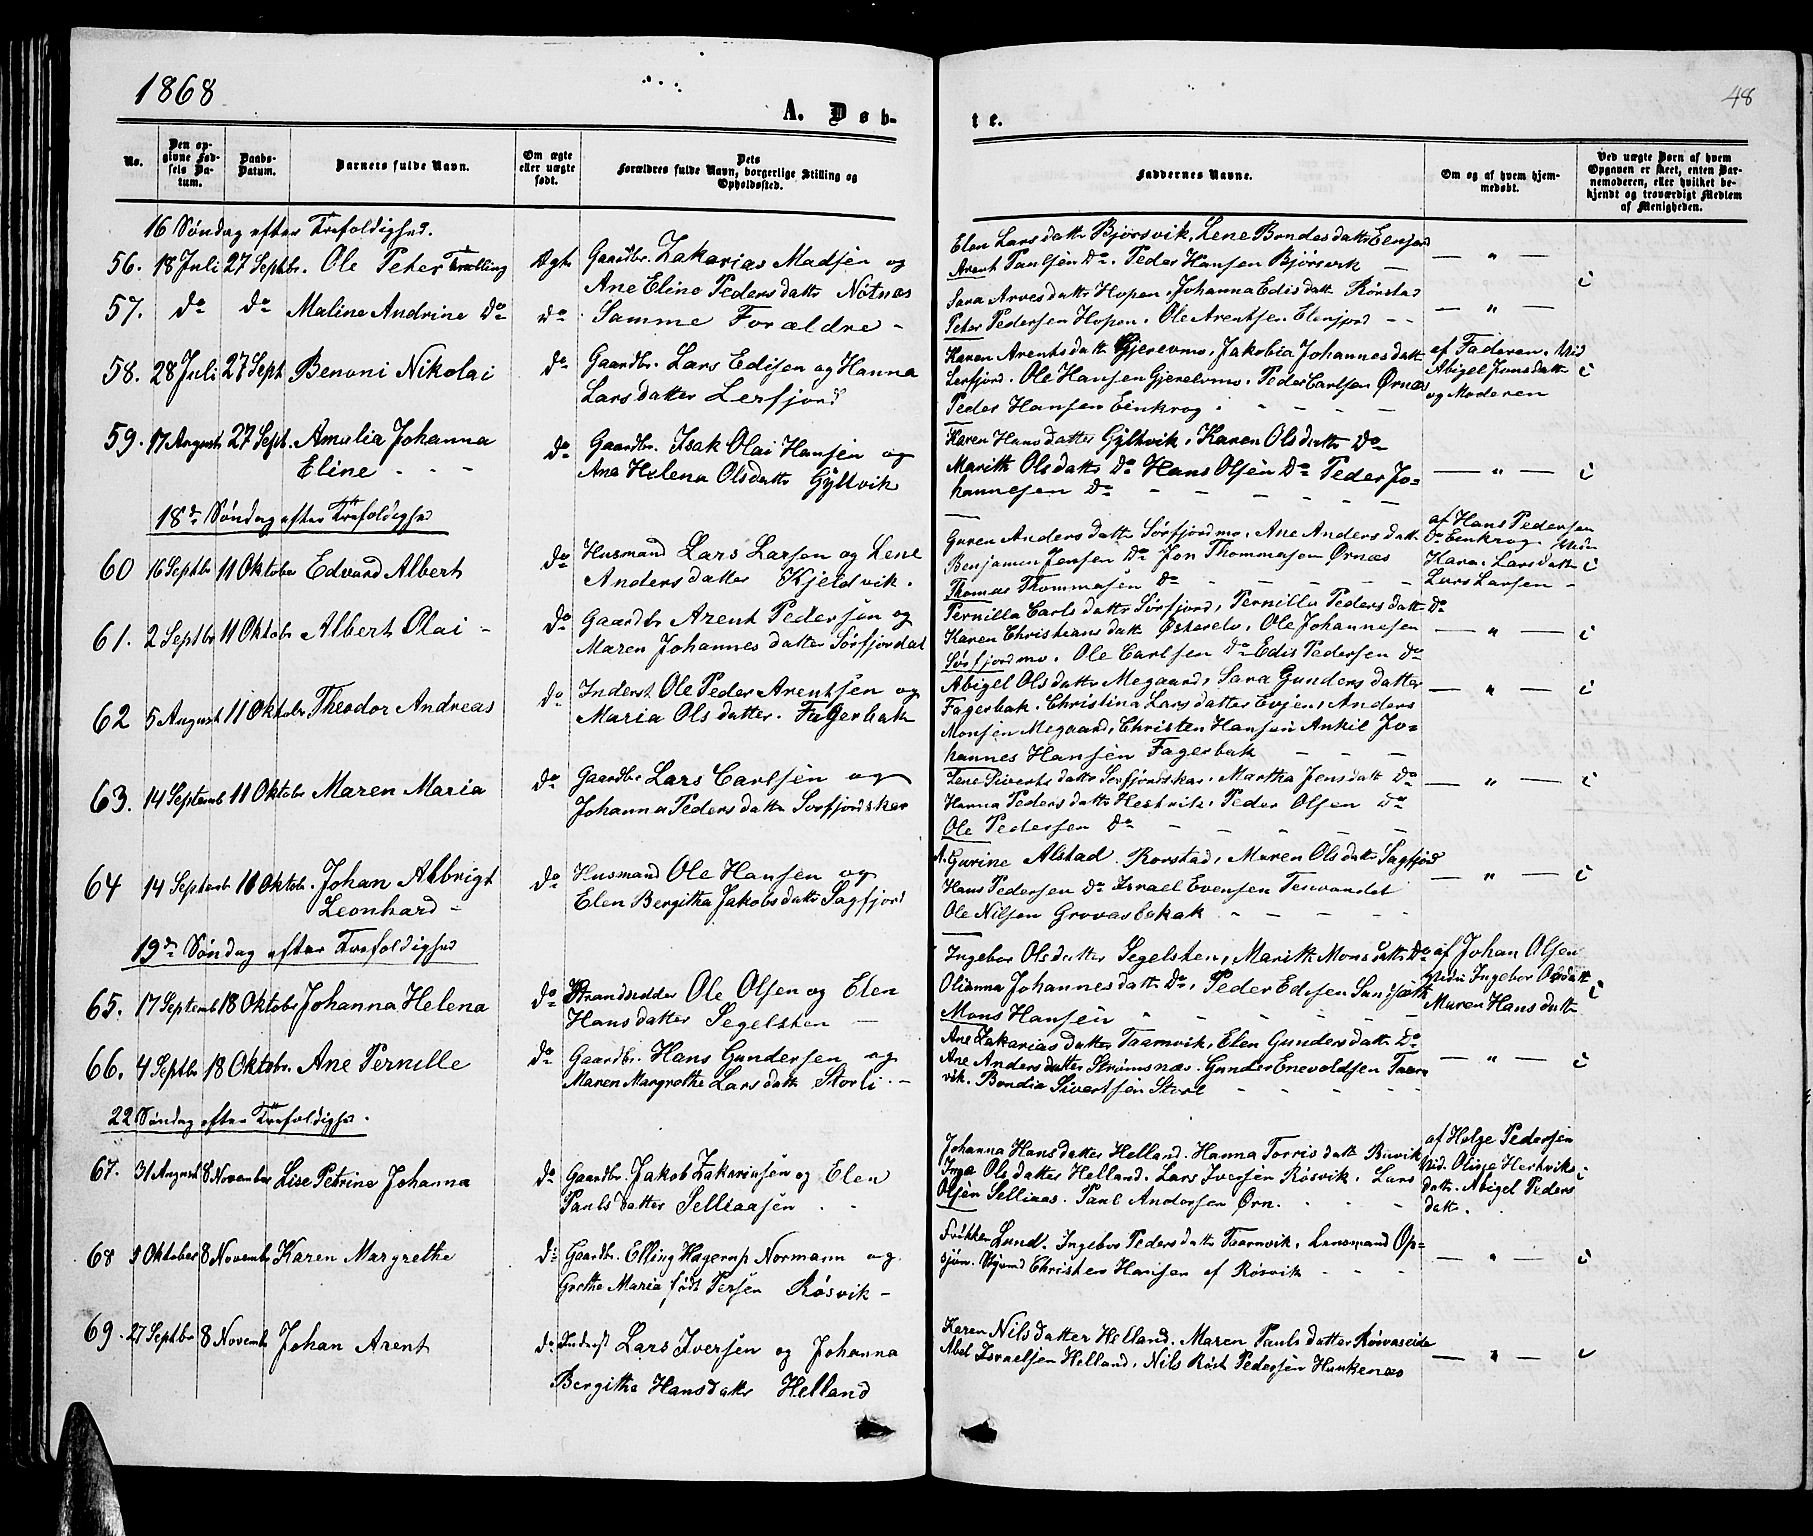 1868
48
A. Døb-
te.
No.
Den op-
givne Fød-
sels Da-
tum.
Daabs-
Datum.
Barnets fulde Navn.
Om ægte
eller uægte
født.
Dets
Forældres fulde Navn, borgerlige Stilling og
Opholdssted.
Faddernes Navne.
Om og af hvem hjem-
medøbt.
Ved uægte Børn af hvem
Opgaven er skeet, enten Bar-
nemoderen, eller hvilket be-
kjendt og troværdigt Medlem
af Menigheden.
16 Søndag efter Trefoldighed.
56. 18 Juli 27 Septbr. Ole Peter Tvilling Ægt. Gaardbr. Zakarias Madsen og
Ane Eline Pedersdatter Nøtnæs
Elen Larsdatter Bjørsvik, Lene Bendesdatter
Arent Paulsen Do. Peder Hansen Bjørsvik — " — i
57. do do Maline Andrine Do do Samme Forældre -
Sara Arvesdatter Hopen, Johanna Edisdatt Rørstad
Peter Pedersen Hopen, Ole Arentsen Elenfjord - - — " —
58. 28 Juli 27 Sept. Benoni Nikolai do Gaardbr. Lars Edisen og Hanna
Larsdatter Lerfjord
Karen Arentsdatt Gjerelvmo, Jakobia Johannesdatt
Lerfjord. Ole Hansen Gjerelvmo, Peder Carlsen Ørnæs
Peder Hansen Eenkrog
af Faderen. Vid
Abigel Jensdatt
og Moderen i
59. 17 August 27 Sept. Amalia Johanna
Eline - - -
do Gaardbr. Isak Olai Hansen og
Ane Helena Olsdatt Gyltvik
Karen Hansdatter Gyltvik, Karen Olsdatt Do
Marith Olsdatt Do Hans Olsen Do Peder Jo-
hannesen Do — " — i
18de Søndag efter Trefoldighed
60 16 Septbr 11 Oktober Edvard Albert do Husmand Lars Larsen og Lene
Andersdatter Kjeldsvik.
Guren Andersdatt Sørfjordmo, Ane Andersdatt
Benjamen Jensen Do Jon Thommasen Ørnæs
Thomas Thommasen Do
af Hans Pedersen
Eenkrog
Kara Larsdatt i
Lars Larsen -
61. 2 Septbr 11 Oktobr Albert Olai - do Gaardbr Arent Pedersen og
Maren Johannesdatter Sørfjordal
Pernilla Carlsdatt Sørfjord, Pernilla Pedersdatt Do
Karen Christiansdatt Østerelv, Ole Johannesen
Sørfjordmo, Ole Carlsen Do Edis Pedersen Do — " — i
62 5 August 11 Oktober Theodor Andreas do Inderst Ole Peder Arentsen og
Maria Olsdatter. Fagerbak
Abigel Olsdatter Megaard, Sara Gundersdatter
Fagerbak. Christina Larsdatter Evjen, Anders
Monsen Megaard, Christen Hansen Ankil Jo-
hannes Hansen Fagerbak — " — i
63. 14 Septemb 11 Oktobr Maren Maria do Gaardbr Lars Carlsen og
Johanna Pedersdatt Sørfjordskar
Lene Sivertsdatt Sørfjordskar, Martha Jensdatt Do
Hanna Pedersdatt Hestvik, Peder Olsen Do
Ole Pedersen Do — " — i
64 14 Septembr 18 Oktob. Johan Albrigt
Leonhard -
do Husmand Ole Hansen og
Elen Bergitha Jakobsdatt Sagfjord
A. Gurine Alstad Rørstad, Maren Olsdatt Sagfjord
Hans Pedersen Do Israel Evensen Tenvandet
Ole Nilsen Grovasbakak — " — i
19de Søndag efter Trefoldighed
65. 17 Septemb 18 Oktober Johanna Helena do Strandsidder Ole Olsen og Elen
Hansdatter Segelsten —
Ingebor Olsdatter Segelsten, Marith Monsdatt Do
Olianna Johannesdatt Do, Peder Edisen
Mons Hansen
af Johan Olsen
Vidn Ingebor Olsdatt
Maren Hansdatt i
66. 4 Septbr 18 Oktobr. Ane Pernille do Gaardbr. Hans Gundersen og
Maren Margrethe Larsdatt Storli. -
Ane Zakariasdatter Taarnvik, Elen Gundersdatt Do
Ane Andersdatter Strømsnæs. Gunder Enevoldsen Taarn
vik. Bendix Sivertsen Storli — " — i
22 Søndag efter Trefoldighed.
67. 31 August 8 November Lise Petrine Johanna do Gaardbr. Jakob Zakariasen og Elen
Paulsdatter Selliaasen
Johanna Hansdatter Helland. Hanna Torrisdatt Buvik
Inga Olsdatter Helland. Lars Iversen Røsvik. Lars
Olsen Selliaas. Paul Andersen Ørn.
af Helge Pedersen
Vid. Oline Hestviks-
datt. Abigel Peders
datt. i
68 1 Oktober 8 Novembr Karen Margrethe do Gaardbr. Elling Hagerup Normann og
Grethe Maria født Persen Røsvik -
Frøkken Lund. Ingebor Pedersdatt Taarnvik, Lensmand Op-
sjøn. Christen Hansen af Røsvik — " — i
69. 27 Septbr 8 Novemb Johan Arent do Inderst Lars Iversen og Johanna
Bergitha Hansdatter Helland
Karen Nilsdatter Helland. Maren Paulsdatter
Abel Israelsen Helland, Nils Røst Pedersen Hunkenæs — " — i